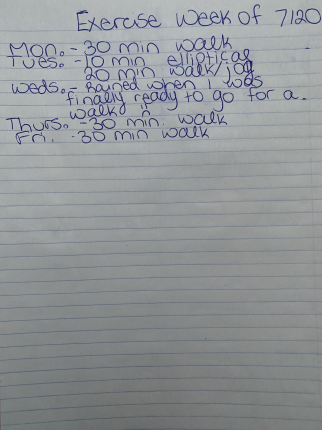 Exercise Week of 7/20
Mon. - 30 min walk
Tues. - 10 min elliptical
20 min walk/jog
Weds. - Rained when I was
finally ready to go for a
walk
Thurs. - 30 min. walk
Fri. - 30 min walk